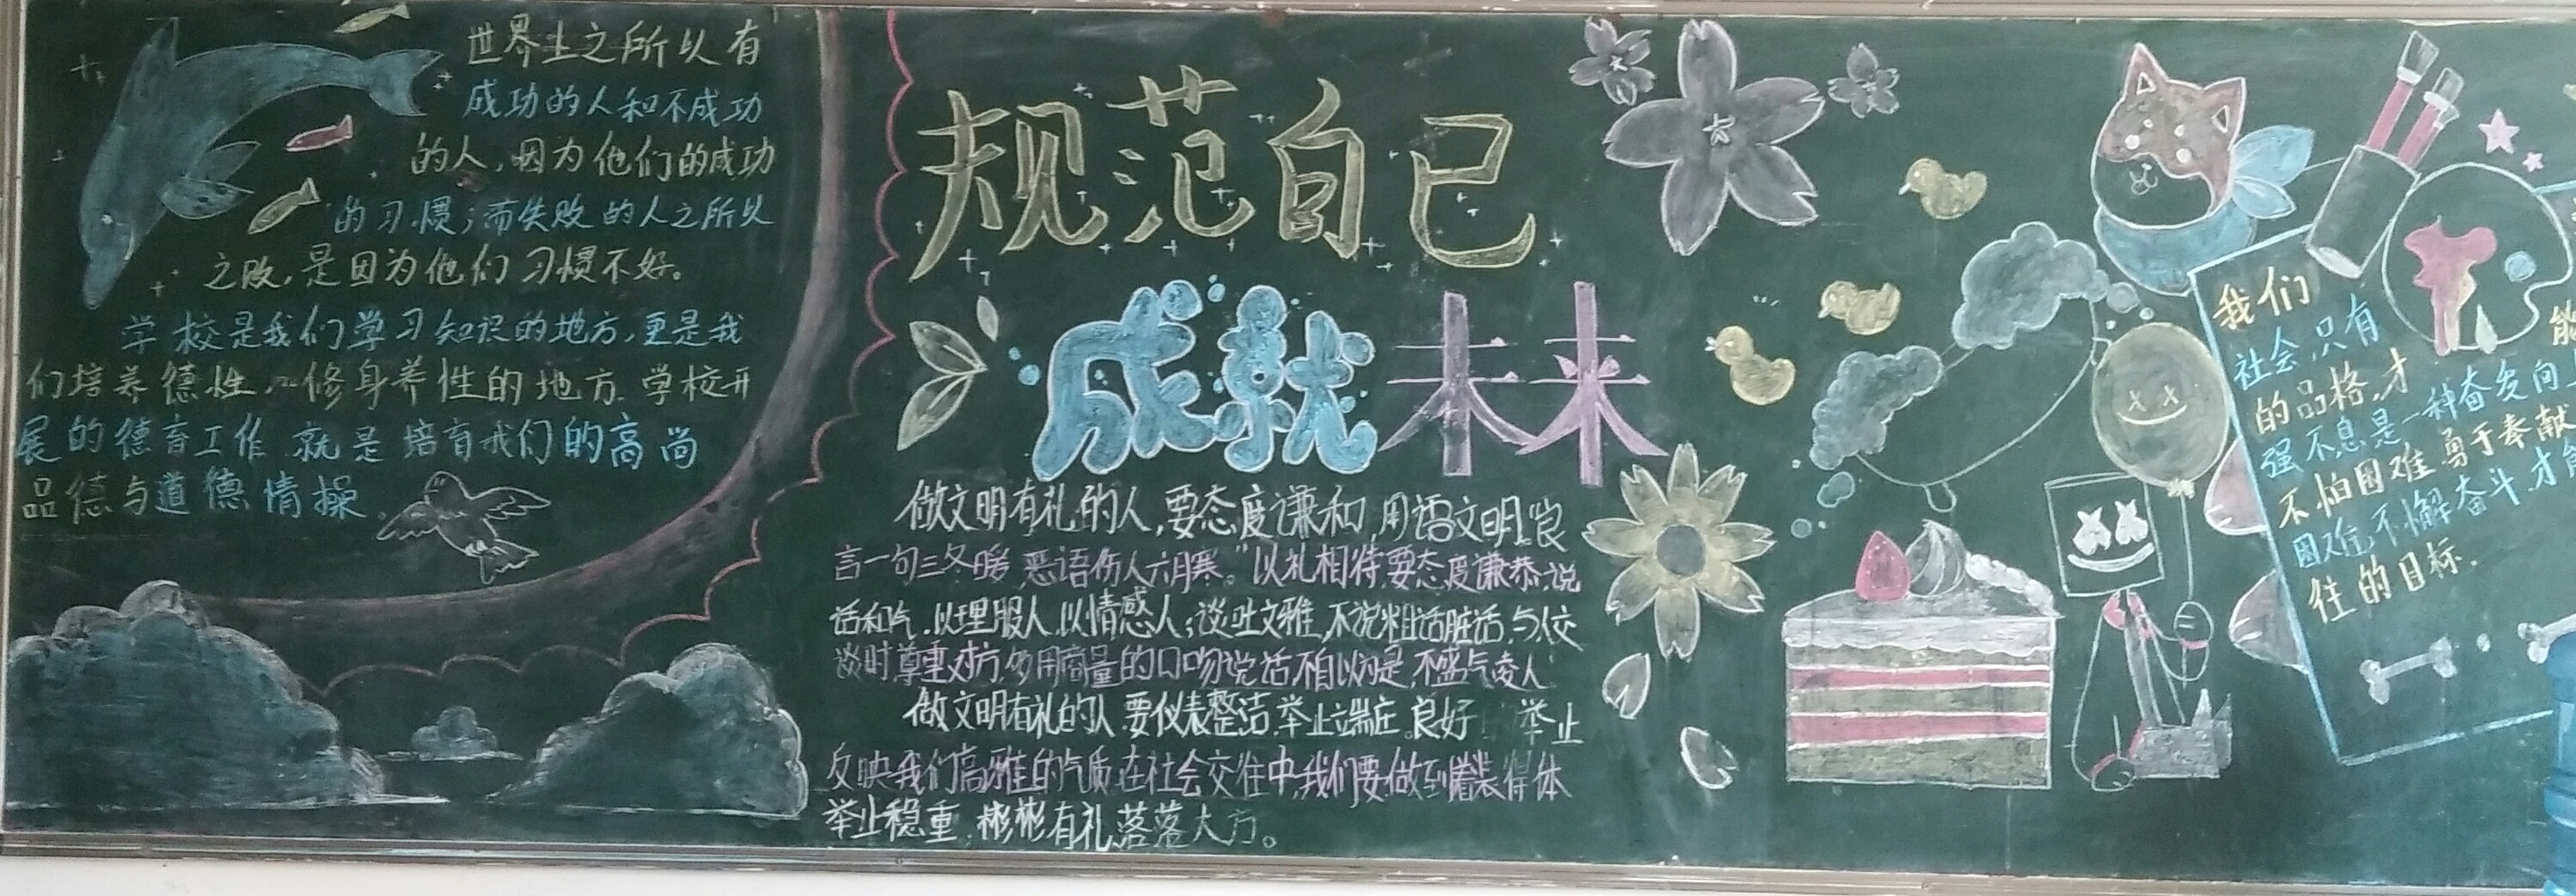 世界上之所以有
成功的人和不成功
的人,因为他们的成功
的习惯;而失败的人之所以
之败,是因为他们习惯不好。
学校是我们学习知识的地方,更是我
们培养德性,修身养性的地方.学校开
展的德育工作.就是培育我们的高尚
品德与道德情操.
规范自己
成就未来
做文明有礼的人,要态度谦和,用语文明"良
言一句三冬暖,恶语伤人六月寒。"以礼相待,要态度谦恭,说
话和气.以理服人.以情感人;谈吐文雅,不说粗话脏话,与人交
谈时,尊重对方,多用商量的口吻说话,不自以为是,不盛气凌人.
做文明有礼的人.要仪表整洁.举止端庄.良好 举止
反映我们高雅的气质.在社会交往中,我们要做到着装得体
举止稳重,彬彬有礼,落落大方。
我们
社会,只有 能
的品格,才
强不息是一种奋发向
不怕困难,勇于奉献
困难,不懈奋斗.才能
往的目标.